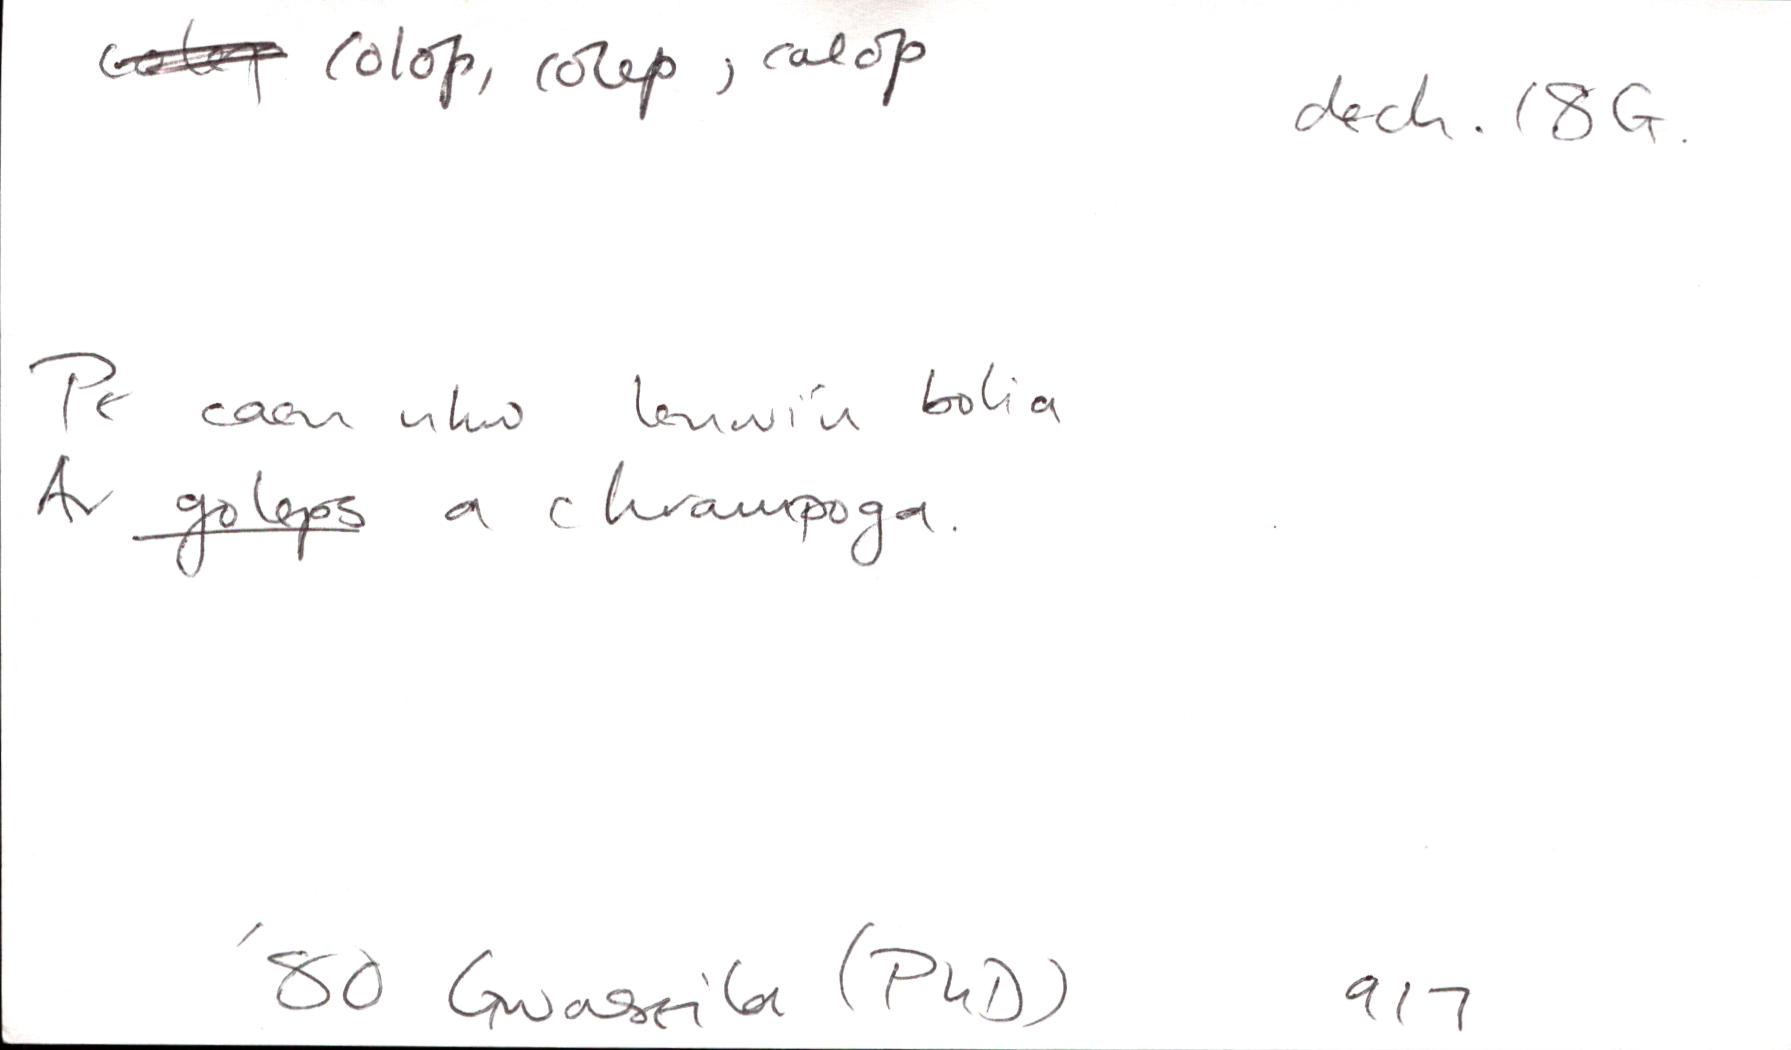 colop, colep, calop
dech. 18G.
Pe caen nhw lenwi'u bolia
Ar goleps a chrampoga.
'80 Gwaseila (PhD) 917